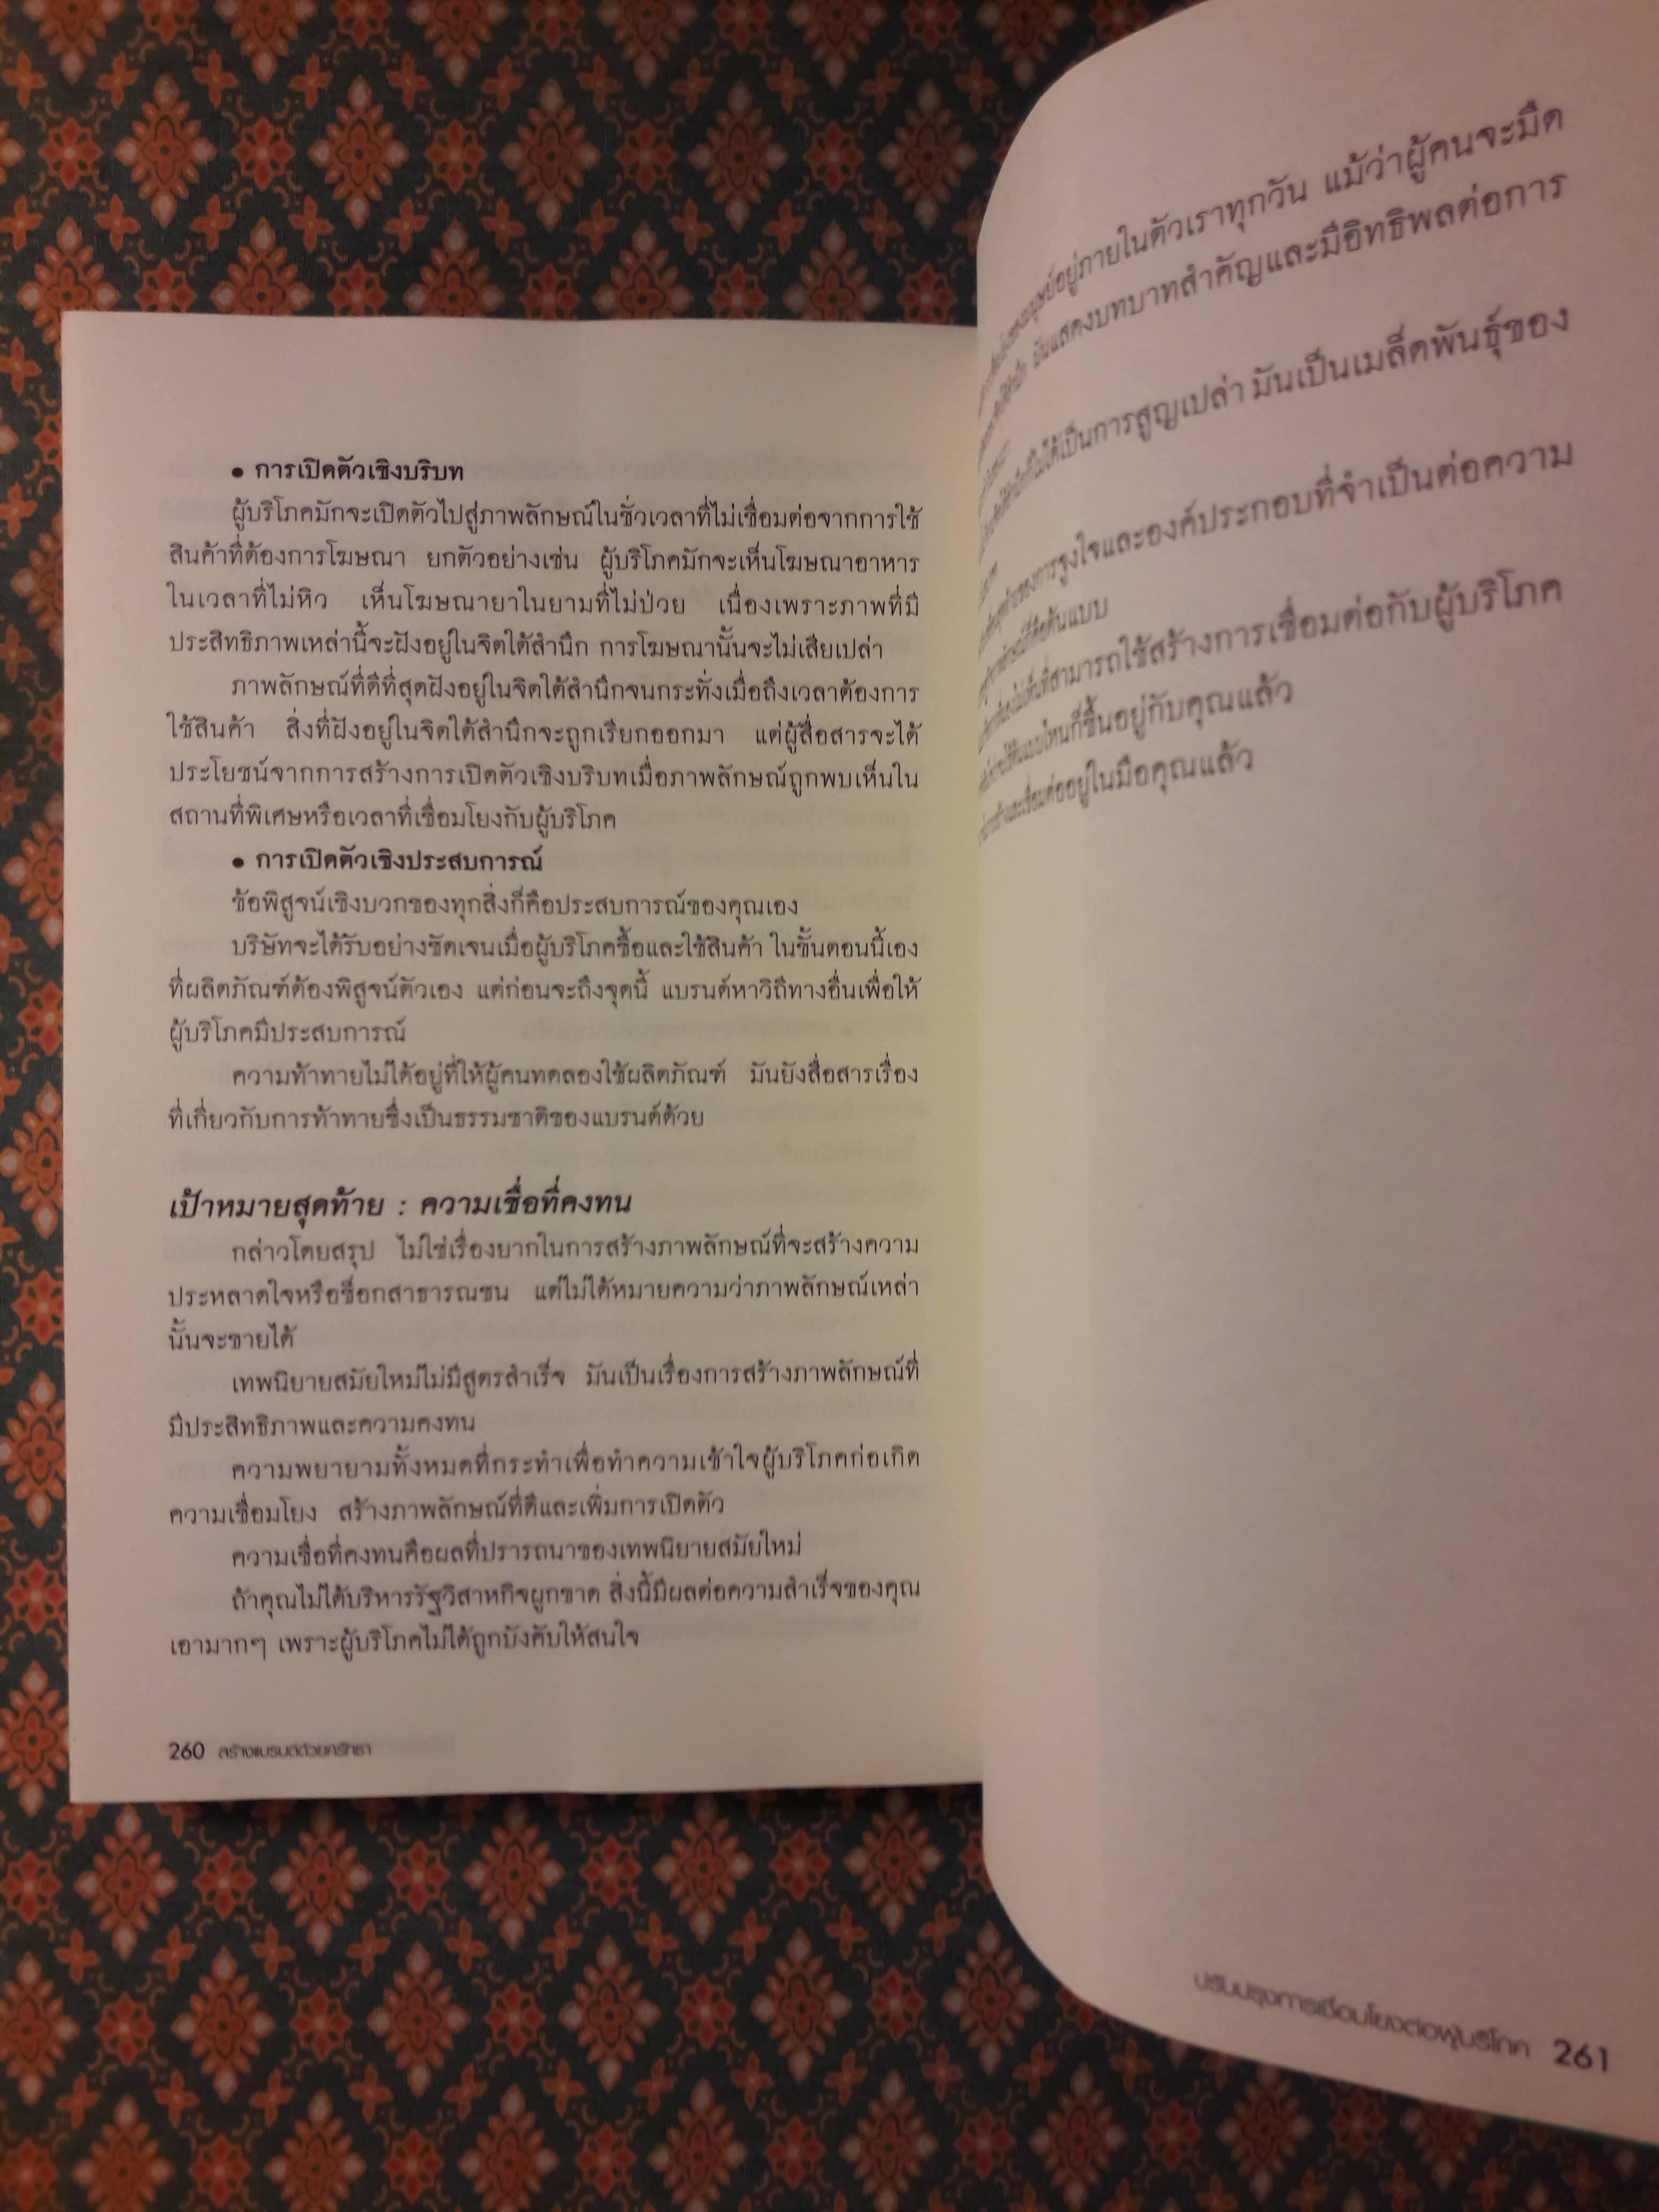 • การเปิดตัวเชิงบริบท
ผู้บริโภคมักจะเปิดตัวไปสู่ภาพลักษณ์ในชั่วเวลาที่ไม่เชื่อมต่อจากการใช้
สินค้าที่ต้องการโฆษณา ยกตัวอย่างเช่น ผู้บริโภคมักจะเห็นโฆษณาอาหาร
ในเวลาที่ไม่หิว เห็นโฆษณายาในยามที่ไม่ป่วย เนื่องเพราะภาพที่มี
ประสิทธิภาพเหล่านี้จะฝังอยู่ในจิตใต้สำนึก การโฆษณานั้นจะไม่เสียเปล่า
ภาพลักษณ์ที่ดีที่สุดฝังอยู่ในจิตใต้สำนึกจนกระทั่งเมื่อถึงเวลาต้องการ
ใช้สินค้า สิ่งที่ฝังอยู่ในจิตใต้สำนึกจะถูกเรียกออกมา แต่ผู้สื่อสารจะได้
ประโยชน์จากการสร้างการเปิดตัวเชิงบริบทเมื่อภาพลักษณ์ถูกพบเห็นใน
สถานที่พิเศษหรือเวลาที่เชื่อมโยงกับผู้บริโภค
• การเปิดตัวเชิงประสบการณ์
ข้อพิสูจน์เชิงบวกของทุกสิ่งก็คือประสบการณ์ของคุณเอง
บริษัทจะได้รับอย่างชัดเจนเมื่อผู้บริโภคซื้อและใช้สินค้า ในขั้นตอนนี้เอง
ที่ผลิตภัณฑ์ต้องพิสูจน์ตัวเอง แต่ก่อนจะถึงจุดนี้ แบรนด์หาวิถีทางอื่นเพื่อให้
ผู้บริโภคมีประสบการณ์
ความท้าทายไม่ได้อยู่ที่ให้ผู้คนทดลองใช้ผลิตภัณฑ์ มันยังสื่อสารเรื่อง
ที่เกี่ยวกับการท้าทายซึ่งเป็นธรรมชาติของแบรนด์ด้วย
เป้าหมายสุดท้าย : ความเชื่อที่คงทน
กล่าวโดยสรุป ไม่ใช่เรื่องยากในการสร้างภาพลักษณ์ที่จะสร้างความ
ประหลาดใจหรือช็อกสาธารณชน แต่ไม่ได้หมายความว่าภาพลักษณ์เหล่า
นั้นจะขายได้
เทพนิยายสมัยใหม่ไม่มีสูตรสำเร็จ มันเป็นเรื่องการสร้างภาพลักษณ์ที่
มีประสิทธิภาพและความคงทน
ความพยายามทั้งหมดที่กระทำเพื่อทำความเข้าใจผู้บริโภคก่อเกิด
ความเชื่อมโยง สร้างภาพลักษณ์ที่ดีและเพิ่มการเปิดตัว
ความเชื่อที่คงทนคือผลที่ปรารถนาของเทพนิยายสมัยใหม่
ถ้าคุณไม่ได้บริหารรัฐวิสาหกิจผูกขาด สิ่งนี้มีผลต่อความสำเร็จของคุณ
เอามากๆ เพราะผู้บริโภคไม่ได้ถูกบังคับให้สนใจ
260 สร้างแบรนด์ด้วยศรัทธา
อยู่ภายในตัวเราทุกวัน แม้ว่าผู้คนจะมีด
มันแสดงบทบาทสำคัญและมีอิทธิพลต่อการ
ไม่ได้เป็นการสูญเปล่า มันเป็นเมล็ดพันธุ์ของ
ของการจูงใจและองค์ประกอบที่จำเป็นต่อความ
คือต้นแบบ
ที่สามารถใช้สร้างการเชื่อมต่อกับผู้บริโภค
แบบไหนก็ขึ้นอยู่กับคุณแล้ว
และเชื่อมต่ออยู่ในมือคุณแล้ว
ปรับปรุงการเชื่อมโยงต่อผู้บริโภค 261